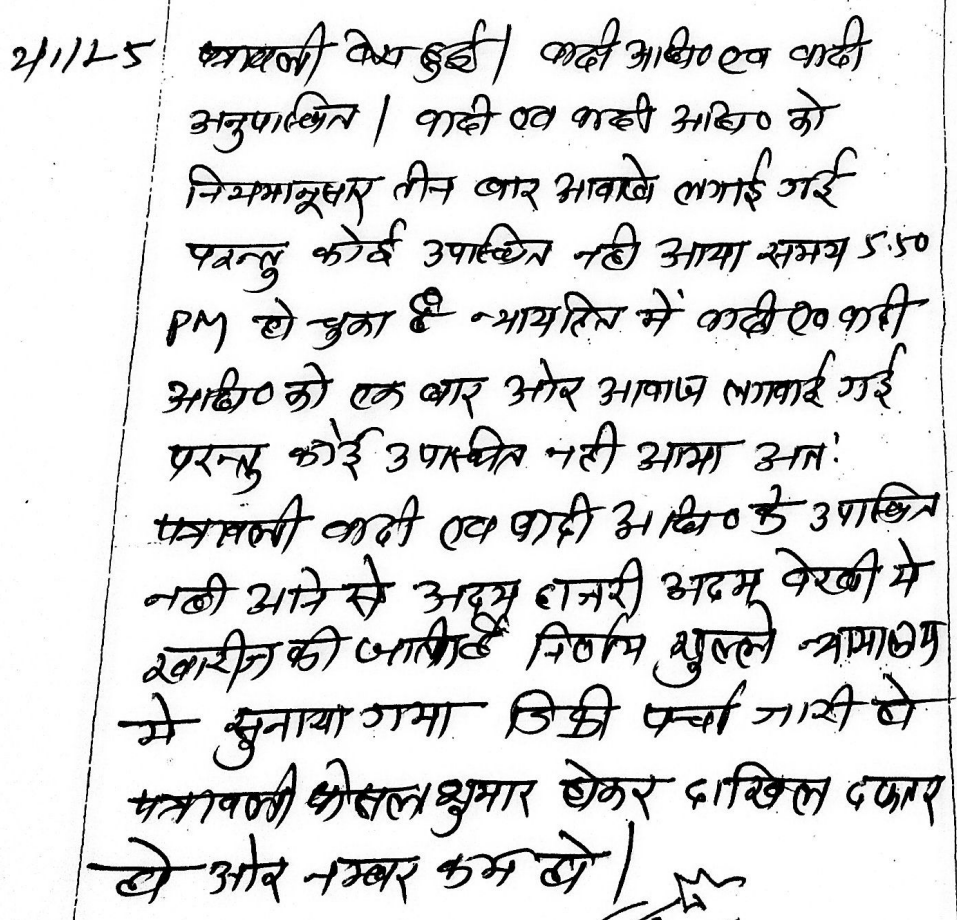 2/1/25 पत्रावली पेश हुई | वादी अधि० एव वादी
अनुपस्थित | वादी एव वादी अधि० को
नियमानुसार तीन बार आवाजे लगाई गई
परन्तु कोई उपस्थित नही आया समय 5:50
PM हो चुका है न्यायहित में वादी एव वादी
अधि० को एक बार ओर आवाज लगवाई गई
परन्तु कोई उपस्थित नही आया अत:
पत्रावली वादी एव वादी अधि० के उपस्थित
नही आने से अदम हाजरी अदम पेरवी मे
खारीज की जाती है निर्णय खुल्ले न्यायालय
मे सुनाया गया डिक्री पर्चा जारी हो
पत्रावली फेसल शुमार होकर दाखिल दफतर
हो ओर नम्बर कम हो |